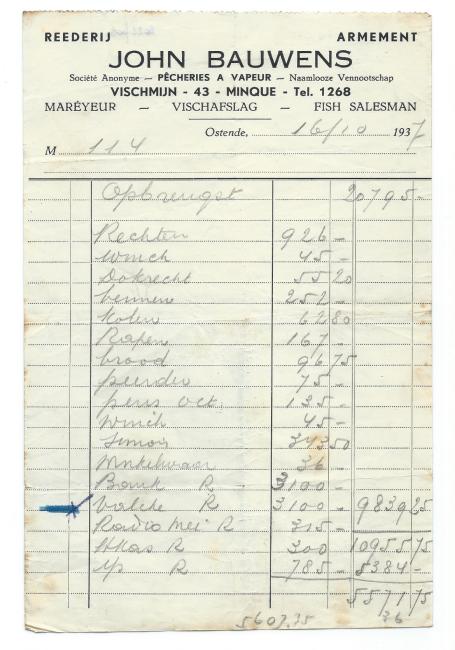 REEDERIJ ARMEMENT
JOHN BAUWENS
Société Anonyme — PÊCHERIES A VAPEUR — Naamlooze Vennootschap
VISCHMIJN - 43 - MINQUE - Tel. 1268
MARÉYEUR — VISCHAFSLAG — FISH SALESMAN
Ostende, 16/10 1937
M 114
Opbrengst 20795-
Rechten 926-
Winch 45-
Dokrecht 5520
bennen 252-
kolen 6280
Rapen 167-
brood 9675
peerden 75-
pens Oct. 135-
Winch 45-
34350
Winkelwaar 36-
Bank R - 3100-
R - 3100- 983925
Radio Mei R 315-
R 300 1095575
ijs R 785- 5384-
557175
5607.75 36